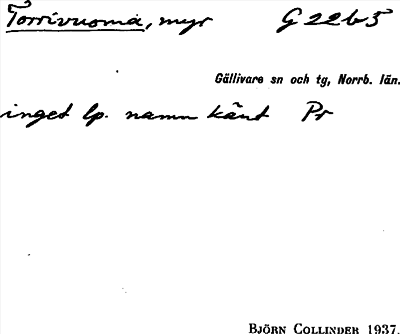 Torrivuoma, myr G 22b5
Gällivare sn och tg, Norrb. län.
inget lp. namn känt Pr
BJÖRN COLLINDER 1937.